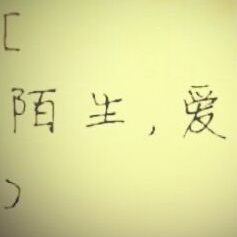 [
陌生,爱
)